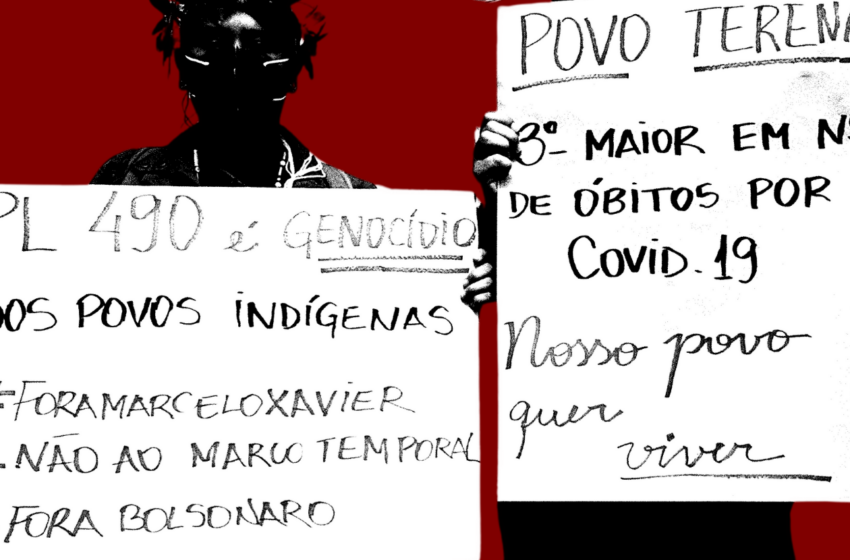 PL 490 é GENOCÍDIO
DOS POVOS INDÍGENAS
#FORAMARCELOXAVIER
NÃO AO MARCO TEMPORAL
FORA BOLSONARO
POVO TERENA
3º MAIOR EM Nº
DE ÓBITOS POR
COVID.19
Nosso povo
quer
viver